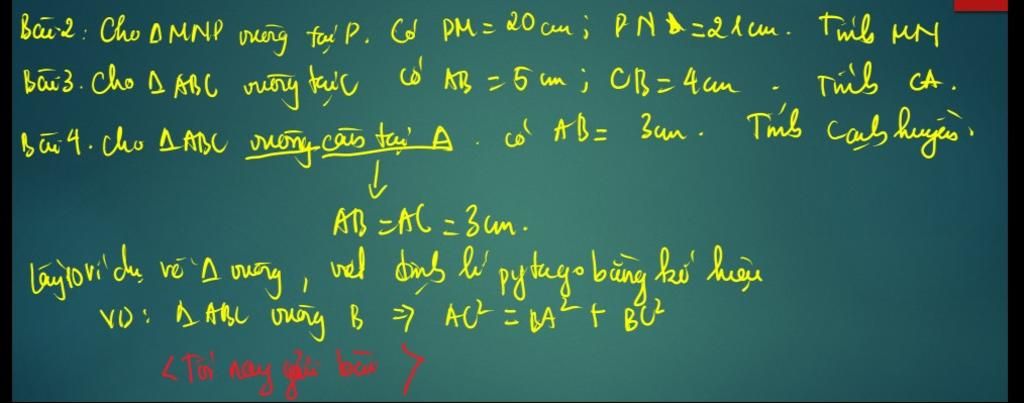 Bài 2: Cho Δ MNP vuông tại P. Có PM = 20 cm; PN = 21 cm. Tính MN
Bài 3. Cho Δ ABC vuông tại C có AB = 5 cm; CB = 4 cm. Tính CA.
Bài 4. Cho ΔABC vuông cân tại A. có AB = 3 cm. Tính cạnh huyền.
AB = AC = 3 cm.
Lấy 10 ví dụ về Δ vuông, viết định lí pytago bằng kí hiệu
VD: Δ ABC vuông B ⇒ AC² = BA² + BC²
< Tối nay gửi bài >